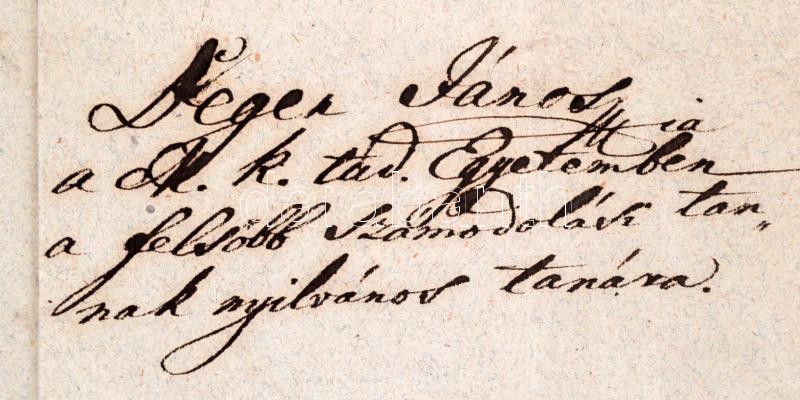 Degen János
a M. k. tud. Egyetemben
a felsőbb számodolási tan„
nak nyilvános tanára.